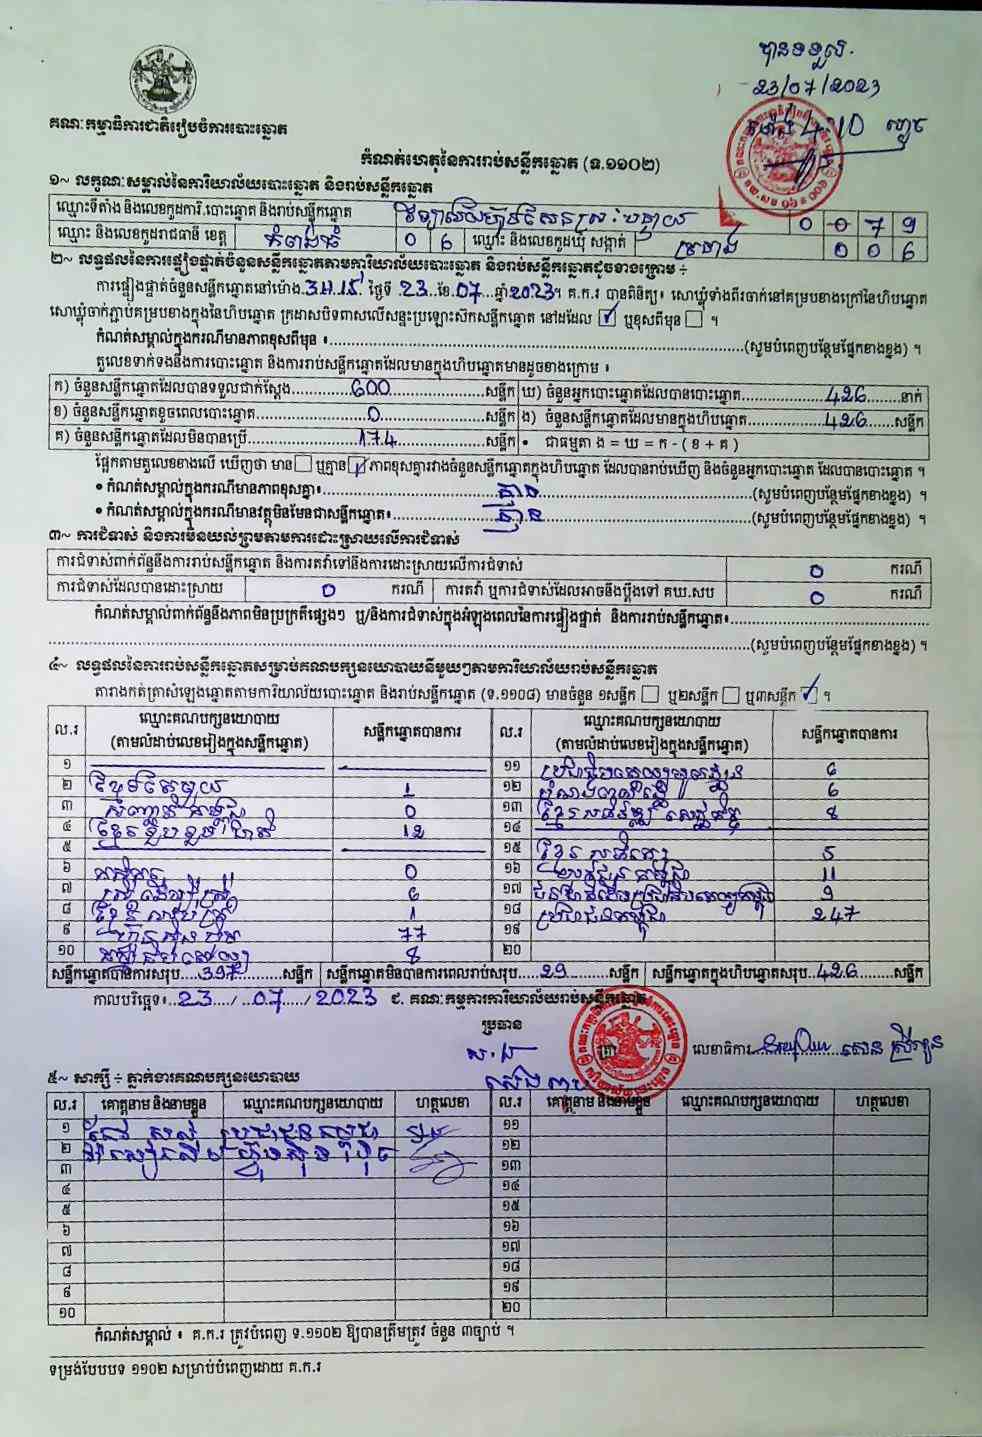 បានទទួល
23/07/2023
ម៉ោង 4:40 ល្ងាច
គណៈកម្មាធិការជាតិរៀបចំការបោះឆ្នោត
កំណត់ហេតុនៃការរាប់សន្លឹកឆ្នោត (ទ.១១០២)
១~ លក្ខណៈសម្គាល់នៃការិយាល័យបោះឆ្នោត និងរាប់សន្លឹកឆ្នោត
ឈ្មោះទីតាំង និងលេខកូដការិ.បោះឆ្នោត និងរាប់សន្លឹកឆ្នោត 0 0 7 9
ឈ្មោះ និងលេខកូដរាជធានី ខេត្ត កំពង់ធំ 0 6 ឈ្មោះ និងលេខកូដឃុំ សង្កាត់ 0 0 6
២~ លទ្ធផលនៃការផ្ទៀងផ្ទាត់ចំនួនសន្លឹកឆ្នោតតាមការិយាល័យបោះឆ្នោត និងរាប់សន្លឹកឆ្នោតដូចខាងក្រោម ÷
ការផ្ទៀងផ្ទាត់ចំនួនសន្លឹកឆ្នោតនៅម៉ោង 3:15 ថ្ងៃទី 23 ខែ 07 ឆ្នាំ 2023។ គ.ក.រ បានពិនិត្យ៖ សោឃ្លុំទាំងពីរចាក់នៅគម្របខាងក្រៅនៃហិបឆ្នោត
សោឃ្លុំចាក់ភ្ជាប់គម្របខាងក្នុងនៃហិបឆ្នោត ក្រដាសបិទពាសលើសន្ទះប្រឡោះស៊កសន្លឹកឆ្នោត នៅដដែល ☑ ឬខុសពីមុន ☐ ។
កំណត់សម្គាល់ក្នុងករណីមានភាពខុសពីមុន ៖ (សូមបំពេញបន្ថែមផ្នែកខាងខ្នង) ។
តួលេខទាក់ទងនឹងការបោះឆ្នោត និងការរាប់សន្លឹកឆ្នោតដែលមានក្នុងហិបឆ្នោតមានដូចខាងក្រោម ៖
ក) ចំនួនសន្លឹកឆ្នោតដែលបានទទួលជាក់ស្ដែង 600 សន្លឹក ឃ) ចំនួនអ្នកបោះឆ្នោតដែលបានបោះឆ្នោត 426 នាក់
ខ) ចំនួនសន្លឹកឆ្នោតខូចពេលបោះឆ្នោត 0 សន្លឹក ង) ចំនួនសន្លឹកឆ្នោតដែលមានក្នុងហិបឆ្នោត 426 សន្លឹក
គ) ចំនួនសន្លឹកឆ្នោតដែលមិនបានប្រើ 174 សន្លឹក • ជាធម្មតា ង = ឃ = ក - ( ខ + គ )
ផ្អែកតាមតួលេខខាងលើ ឃើញថា មាន ☐ ឬគ្មាន ☑ ភាពខុសគ្នារវាងចំនួនសន្លឹកឆ្នោតក្នុងហិបឆ្នោត ដែលបានរាប់ឃើញ និងចំនួនអ្នកបោះឆ្នោត ដែលបានបោះឆ្នោត ។
• កំណត់សម្គាល់ក្នុងករណីមានភាពខុសគ្នា៖ គ្មាន (សូមបំពេញបន្ថែមផ្នែកខាងខ្នង) ។
• កំណត់សម្គាល់ក្នុងករណីមានវត្ថុមិនមែនជាសន្លឹកឆ្នោត៖ គ្មាន (សូមបំពេញបន្ថែមផ្នែកខាងខ្នង) ។
៣~ ការជំទាស់ និងការមិនយល់ព្រមតាមការដោះស្រាយលើការជំទាស់
ការជំទាស់ពាក់ព័ន្ធនឹងការរាប់សន្លឹកឆ្នោត និងការតវ៉ាទៅនឹងការដោះស្រាយលើការជំទាស់ 0 ករណី
ការជំទាស់ដែលបានដោះស្រាយ 0 ករណី ការតវ៉ា ឬការជំទាស់ដែលអាចនឹងប្ដឹងទៅ គឃ.សប 0 ករណី
កំណត់សម្គាល់ពាក់ព័ន្ធនឹងភាពមិនប្រក្រតីផ្សេងៗ ឬ/និងការជំទាស់ក្នុងអំឡុងពេលនៃការផ្ទៀងផ្ទាត់ និងការរាប់សន្លឹកឆ្នោត៖
(សូមបំពេញបន្ថែមផ្នែកខាងខ្នង) ។
៤~ លទ្ធផលនៃការរាប់សន្លឹកឆ្នោតសម្រាប់គណបក្សនយោបាយនីមួយៗតាមការិយាល័យរាប់សន្លឹកឆ្នោត
តារាងកត់ត្រាសំឡេងឆ្នោតតាមការិយាល័យបោះឆ្នោត និងរាប់សន្លឹកឆ្នោត (ទ.១១០៨) មានចំនួន ១សន្លឹក ☐ ឬ២សន្លឹក ☐ ឬ៣សន្លឹក ☑ ។
ល.រ ឈ្មោះគណបក្សនយោបាយ (តាមលំដាប់លេខរៀងក្នុងសន្លឹកឆ្នោត) សន្លឹកឆ្នោតបានការ ល.រ ឈ្មោះគណបក្សនយោបាយ (តាមលំដាប់លេខរៀងក្នុងសន្លឹកឆ្នោត) សន្លឹកឆ្នោតបានការ
១ ១១ 6
២ 1 ១២ 6
៣ 0 ១៣ 8
៤ ខ្មែររួបរួមជាតិ 12 ១៤
៥ ១៥ 5
៦ 0 ១៦ 11
៧ 6 ១៧ 9
៨ 1 ១៨ ប្រជាជនកម្ពុជា 247
៩ ហ្វ៊ុនស៊ិនប៉ិច 77 ១៩
១០ 8 ២០
សន្លឹកឆ្នោតបានការសរុប 397 សន្លឹក សន្លឹកឆ្នោតមិនបានការពេលរាប់សរុប 29 សន្លឹក សន្លឹកឆ្នោតក្នុងហិបឆ្នោតសរុប 426 សន្លឹក
កាលបរិច្ឆេទ៖ 23 / 07 / 2023 ជ. គណៈកម្មការការិយាល័យរាប់សន្លឹកឆ្នោត
ប្រធាន
លេខាធិការ
៥~ សាក្សី ÷ ភ្នាក់ងារគណបក្សនយោបាយ
ល.រ គោត្តនាម និងនាមខ្លួន ឈ្មោះគណបក្សនយោបាយ ហត្ថលេខា ល.រ គោត្តនាម និងនាមខ្លួន ឈ្មោះគណបក្សនយោបាយ ហត្ថលេខា
១ ប្រជាជនកម្ពុជា ១១
២ ហ្វ៊ុនស៊ិនប៉ិច ១២
៣ ១៣
៤ ១៤
៥ ១៥
៦ ១៦
៧ ១៧
៨ ១៨
៩ ១៩
១០ ២០
កំណត់សម្គាល់ ៖ គ.ក.រ ត្រូវបំពេញ ទ.១១០២ ឱ្យបានត្រឹមត្រូវ ចំនួន ៣ច្បាប់ ។
ទម្រង់បែបបទ ១១០២ សម្រាប់បំពេញដោយ គ.ក.រ